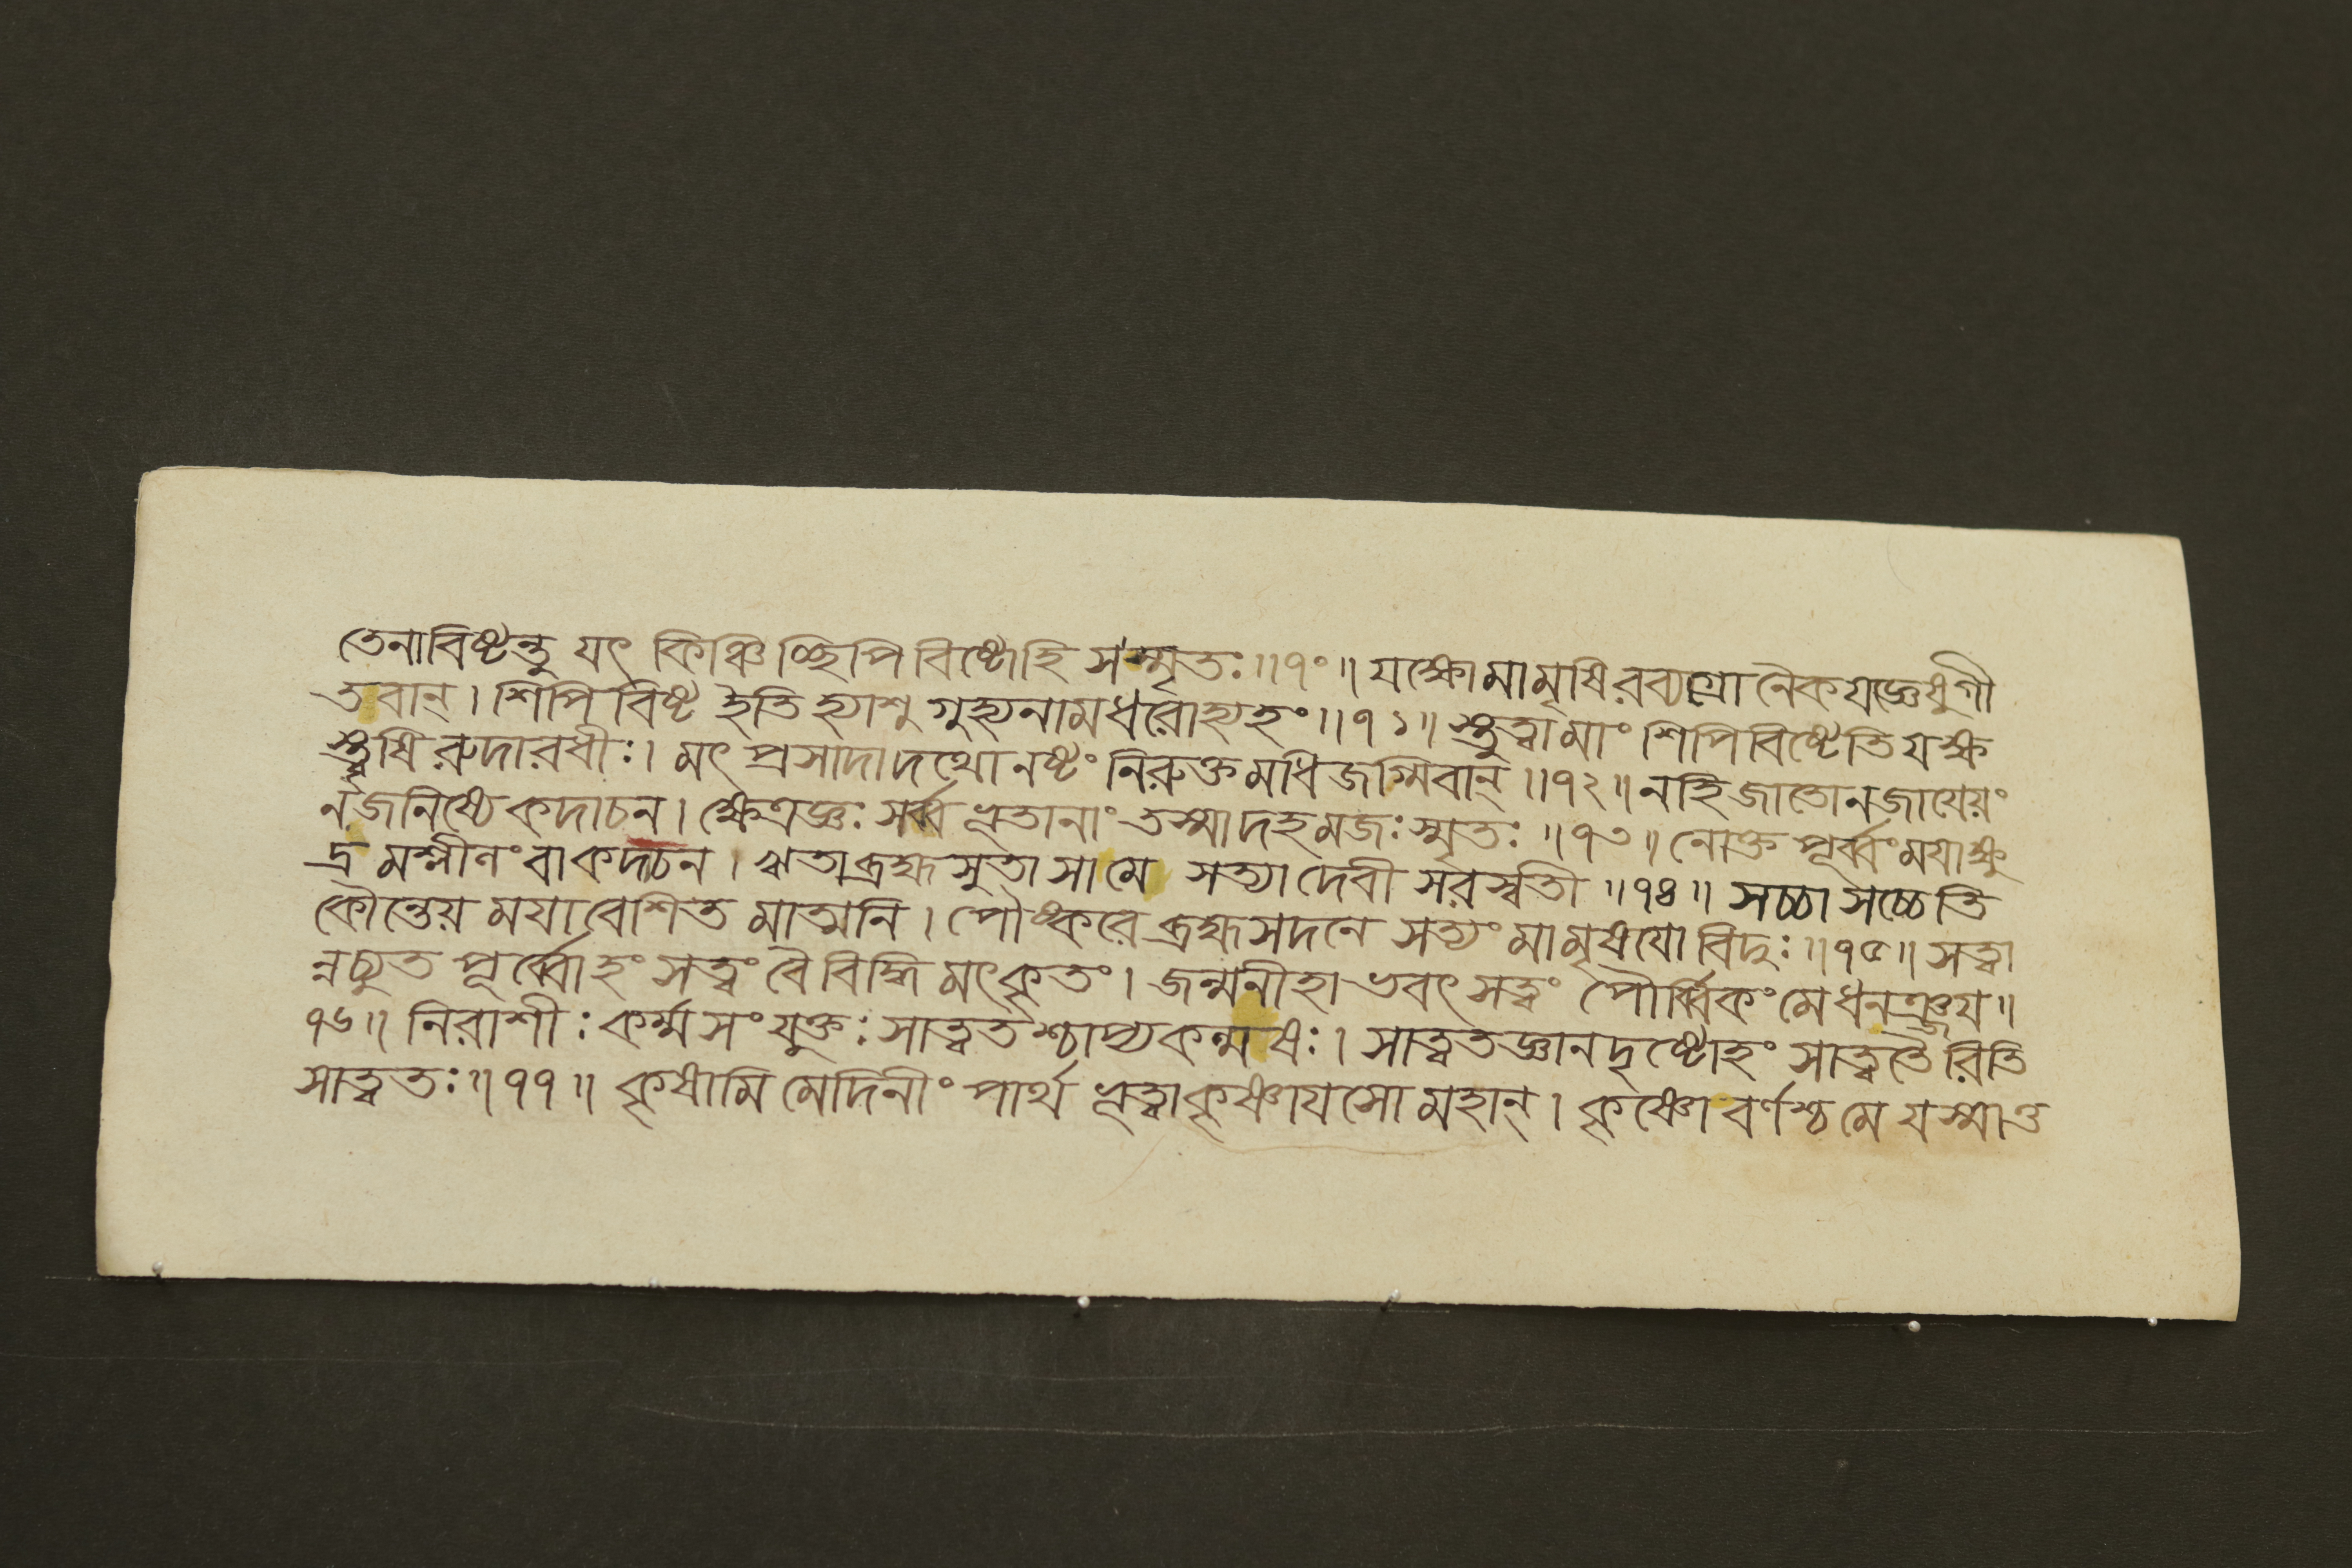 তেনাবিষ্টন্তু যৎ কিঞ্চিচ্ছিপিবিষ্টোহি সম্মৃতঃ॥৭০॥ যস্কোমামৃষিরব্যগ্রো নৈকযজ্ঞেষুগী
তবান্। শিপিবিষ্ট ইতি হ্যাশু গুহ্যনামধরোহ্যহং॥৭১॥ স্তুত্বামাং শিপিবিষ্টেতি যস্ক
স্তৃষি রুদারধীঃ। মৎ প্রসাদাদথো নষ্টং নিরুক্তমধিজগ্মিবান্॥৭২॥ নহি জাতোনজায়েয়ং
নজনিষ্যে কদাচন। ক্ষেত্রজ্ঞঃ সর্ব্বভূতানাং তস্মাদহমজঃ স্মৃতঃ॥৭৩॥ নোক্ত পূর্ব্বংময়াক্ষু
দ্রমশ্লীনংবাকদাচন। ঋতাব্রহ্মসুতা সামে সত্যাদেবী সরস্বতী॥৭৪॥ সচ্চাসচ্চেতি
কৌন্তেয় ময়াবেশিত মাত্মনি। পৌষ্করে ব্রহ্মসদনে সত্যং মামৃষয়ো বিদুঃ॥৭৫॥ সত্বা
ন্নচ্যুত পূর্ব্বোহং সত্বং বৈ বিদ্ধি মৎকৃতং। জন্মনীহা ভবৎ সত্বং পৌর্ব্বিকং মেধনঞ্জয়॥
৭৬॥ নিরাশীঃ কর্ম্মসংযুক্তঃ সাত্বতশ্চাপ্যকল্মষঃ। সাত্বতজ্ঞানদৃষ্টোহং সাত্বতৈরিতি
সাত্বতঃ॥৭৭॥ কৃষামি মেদিনীং পার্থ ভূত্বাকৃষ্ণায়সো মহান্। কৃষ্ণো বর্ণশ্চ মে যস্মাত্ত